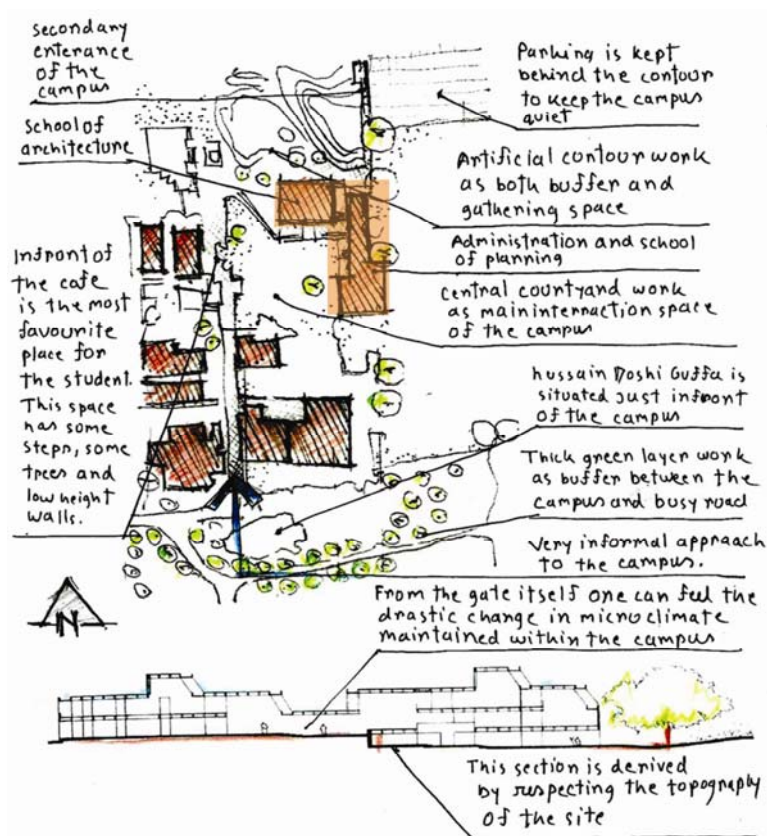 secondary
enterance
of the
campus
School of
architecture
Infront of
the cafe
is the most
favourite
place for
the student.
This space
has some
steps, some
trees and
low height
walls.
Parking is kept
behind the contour
to keep the campus
quiet
Artificial contour work
as both buffer and
gathering space
Administration and school
of planning
Central courtyard work
as main interraction space
of the campus
hussain Doshi Guffa is
situated just infront
of the campus
Thick green layer work
as buffer between the
campus and busy road
Very informal appraach
to the campus.
From the gate itself one can feel the
drastic change in microclimate
maintained within the campus
N
This section is derived
by respecting the topography
of the site